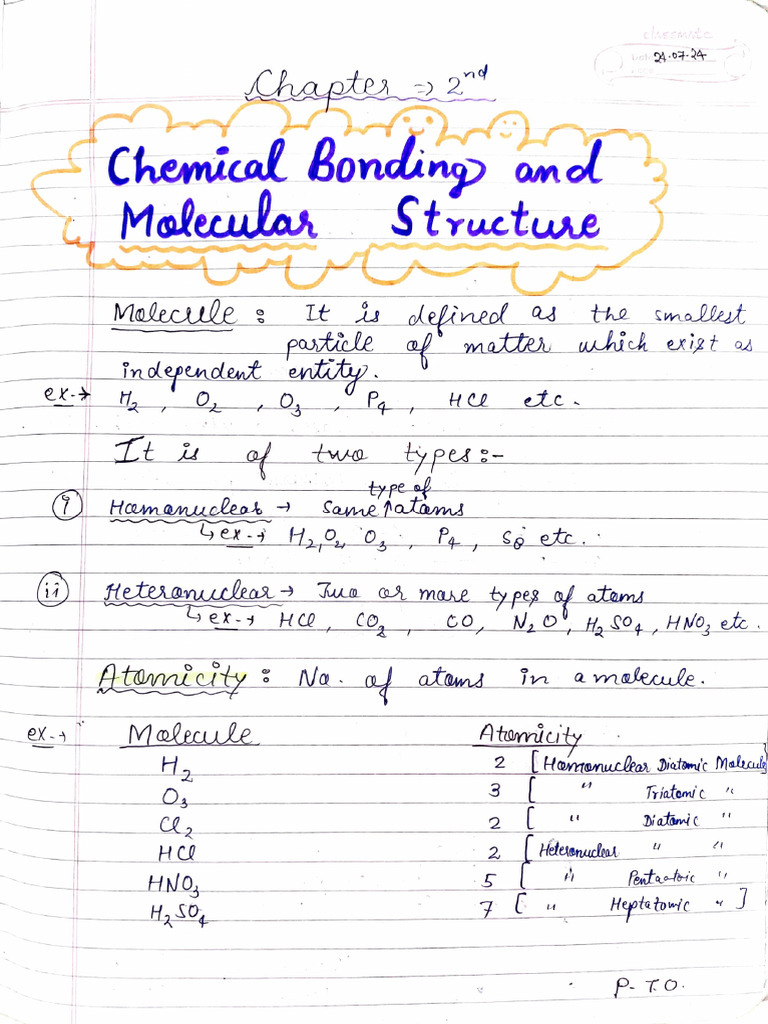 classmate
24-07-24
Chapter ⇒ 2nd
Chemical Bonding and
Molecular Structure
Molecule : It is defined as the smallest
particle of matter which exist as
independent entity.
ex.→ H2 , O2 , O3 , P4 , HCl etc.
It is of two types:-
(i) Homonuclear → Same ↑ type of atoms
↳ ex.→ H2, O2, O3 , P4 , S8 etc.
(ii) Heteronuclear → Two or more types of atoms
↳ ex.→ HCl , CO2 , CO , N2O , H2SO4 , HNO3 etc.
Atomicity : No. of atoms in a molecule.
ex.→ Molecule Atomicity
H2 2 [ Homonuclear Diatomic Molecule ]
O3 3 [ " Triatomic "
Cl2 2 [ " Diatomic "
HCl 2 [ Heteronuclear " "
HNO3 5 [ " "
H2SO4 7 [ " Heptatomic " ]
P.T.O.